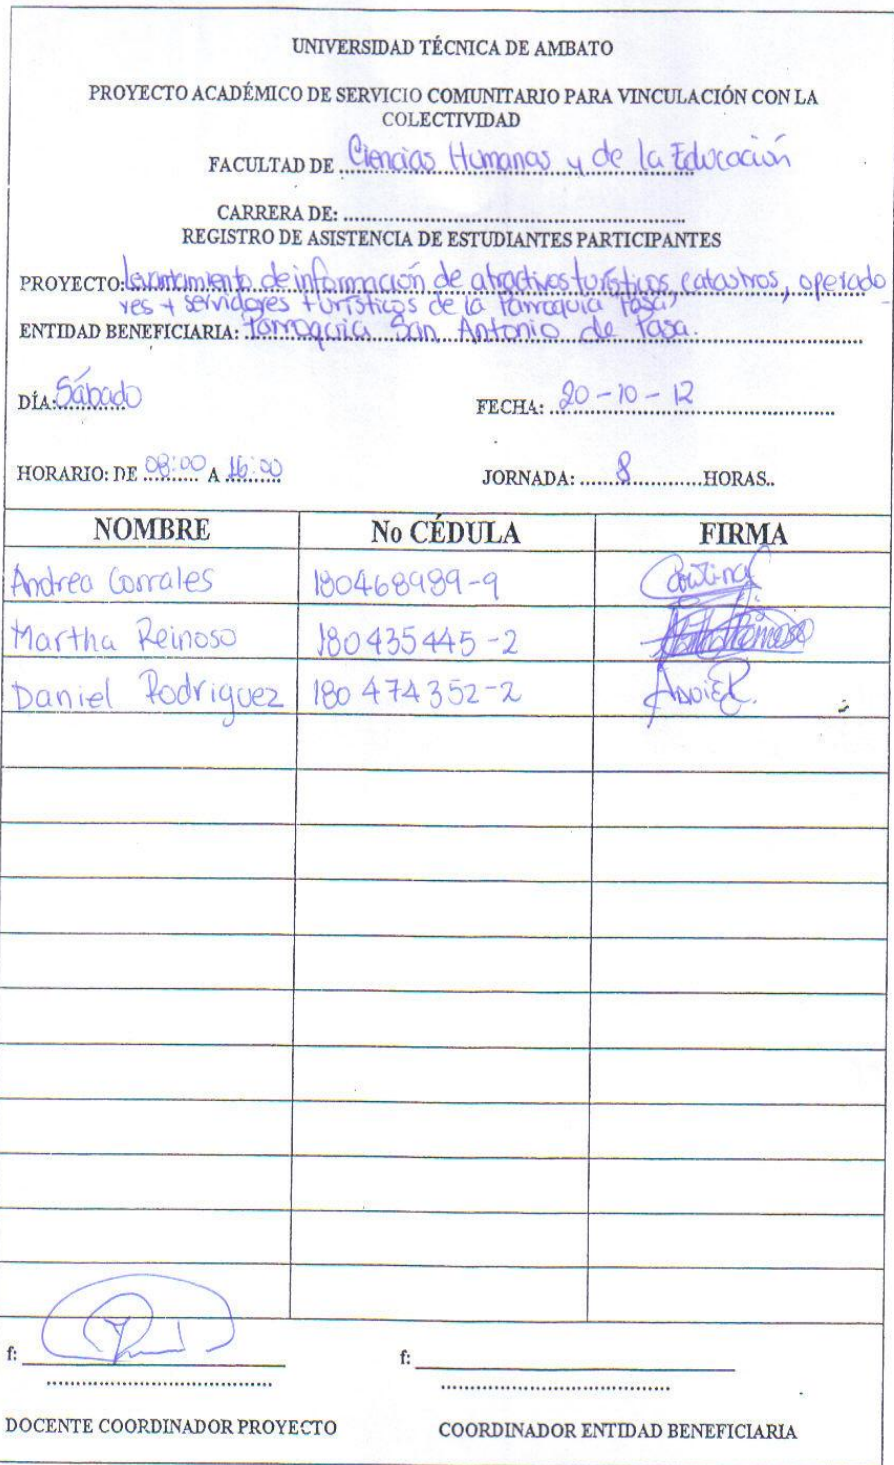 UNIVERSIDAD TÉCNICA DE AMBATO
PROYECTO ACADÉMICO DE SERVICIO COMUNITARIO PARA VINCULACIÓN CON LA
COLECTIVIDAD
FACULTAD DE Ciencias Humanas y de la Educación
CARRERA DE: ........................................................
REGISTRO DE ASISTENCIA DE ESTUDIANTES PARTICIPANTES
PROYECTO: levantamiento de información de atractivos turísticos, catastros, operado
res + servidores turísticos de la Parroquia Pasa,
ENTIDAD BENEFICIARIA: Parroquia San Antonio de Pasa.
DÍA: Sábado FECHA: 20-10-12
HORARIO: DE 08:00 A 16:00 JORNADA: 8 HORAS..
NOMBRE No CÉDULA FIRMA
Andrea Corrales 180468989-9
Martha Reinoso 180435445-2
Daniel Rodriguez 180474352-2
f: f:
DOCENTE COORDINADOR PROYECTO COORDINADOR ENTIDAD BENEFICIARIA